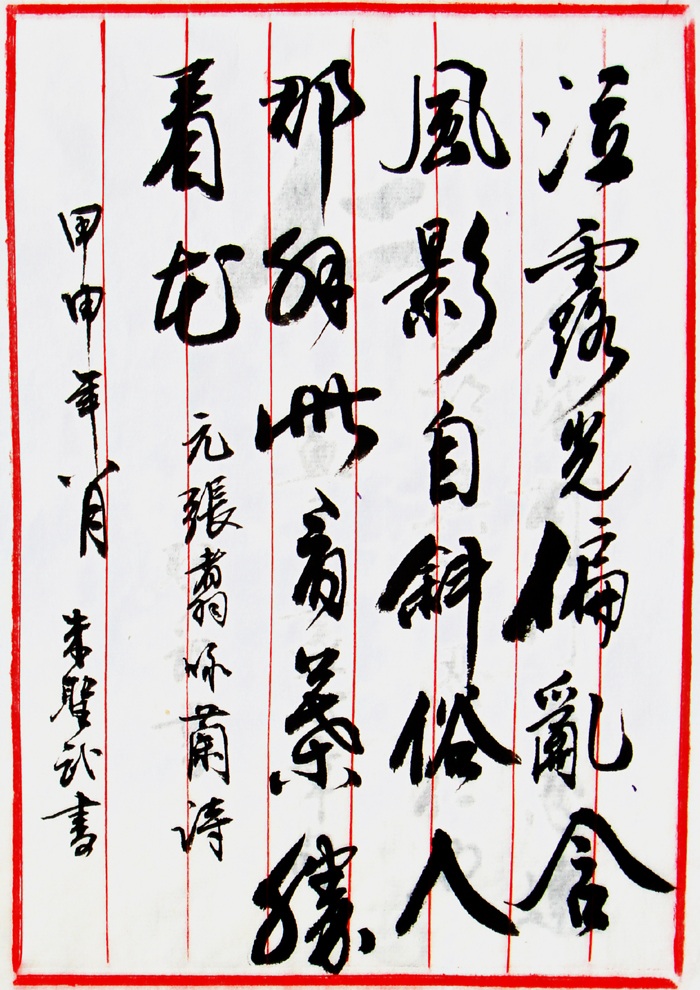 泣露光偏亂含
風影自斜俗人
那解此看葉勝
看花 元張翥咏蘭詩
甲申年八月 朱聖武書